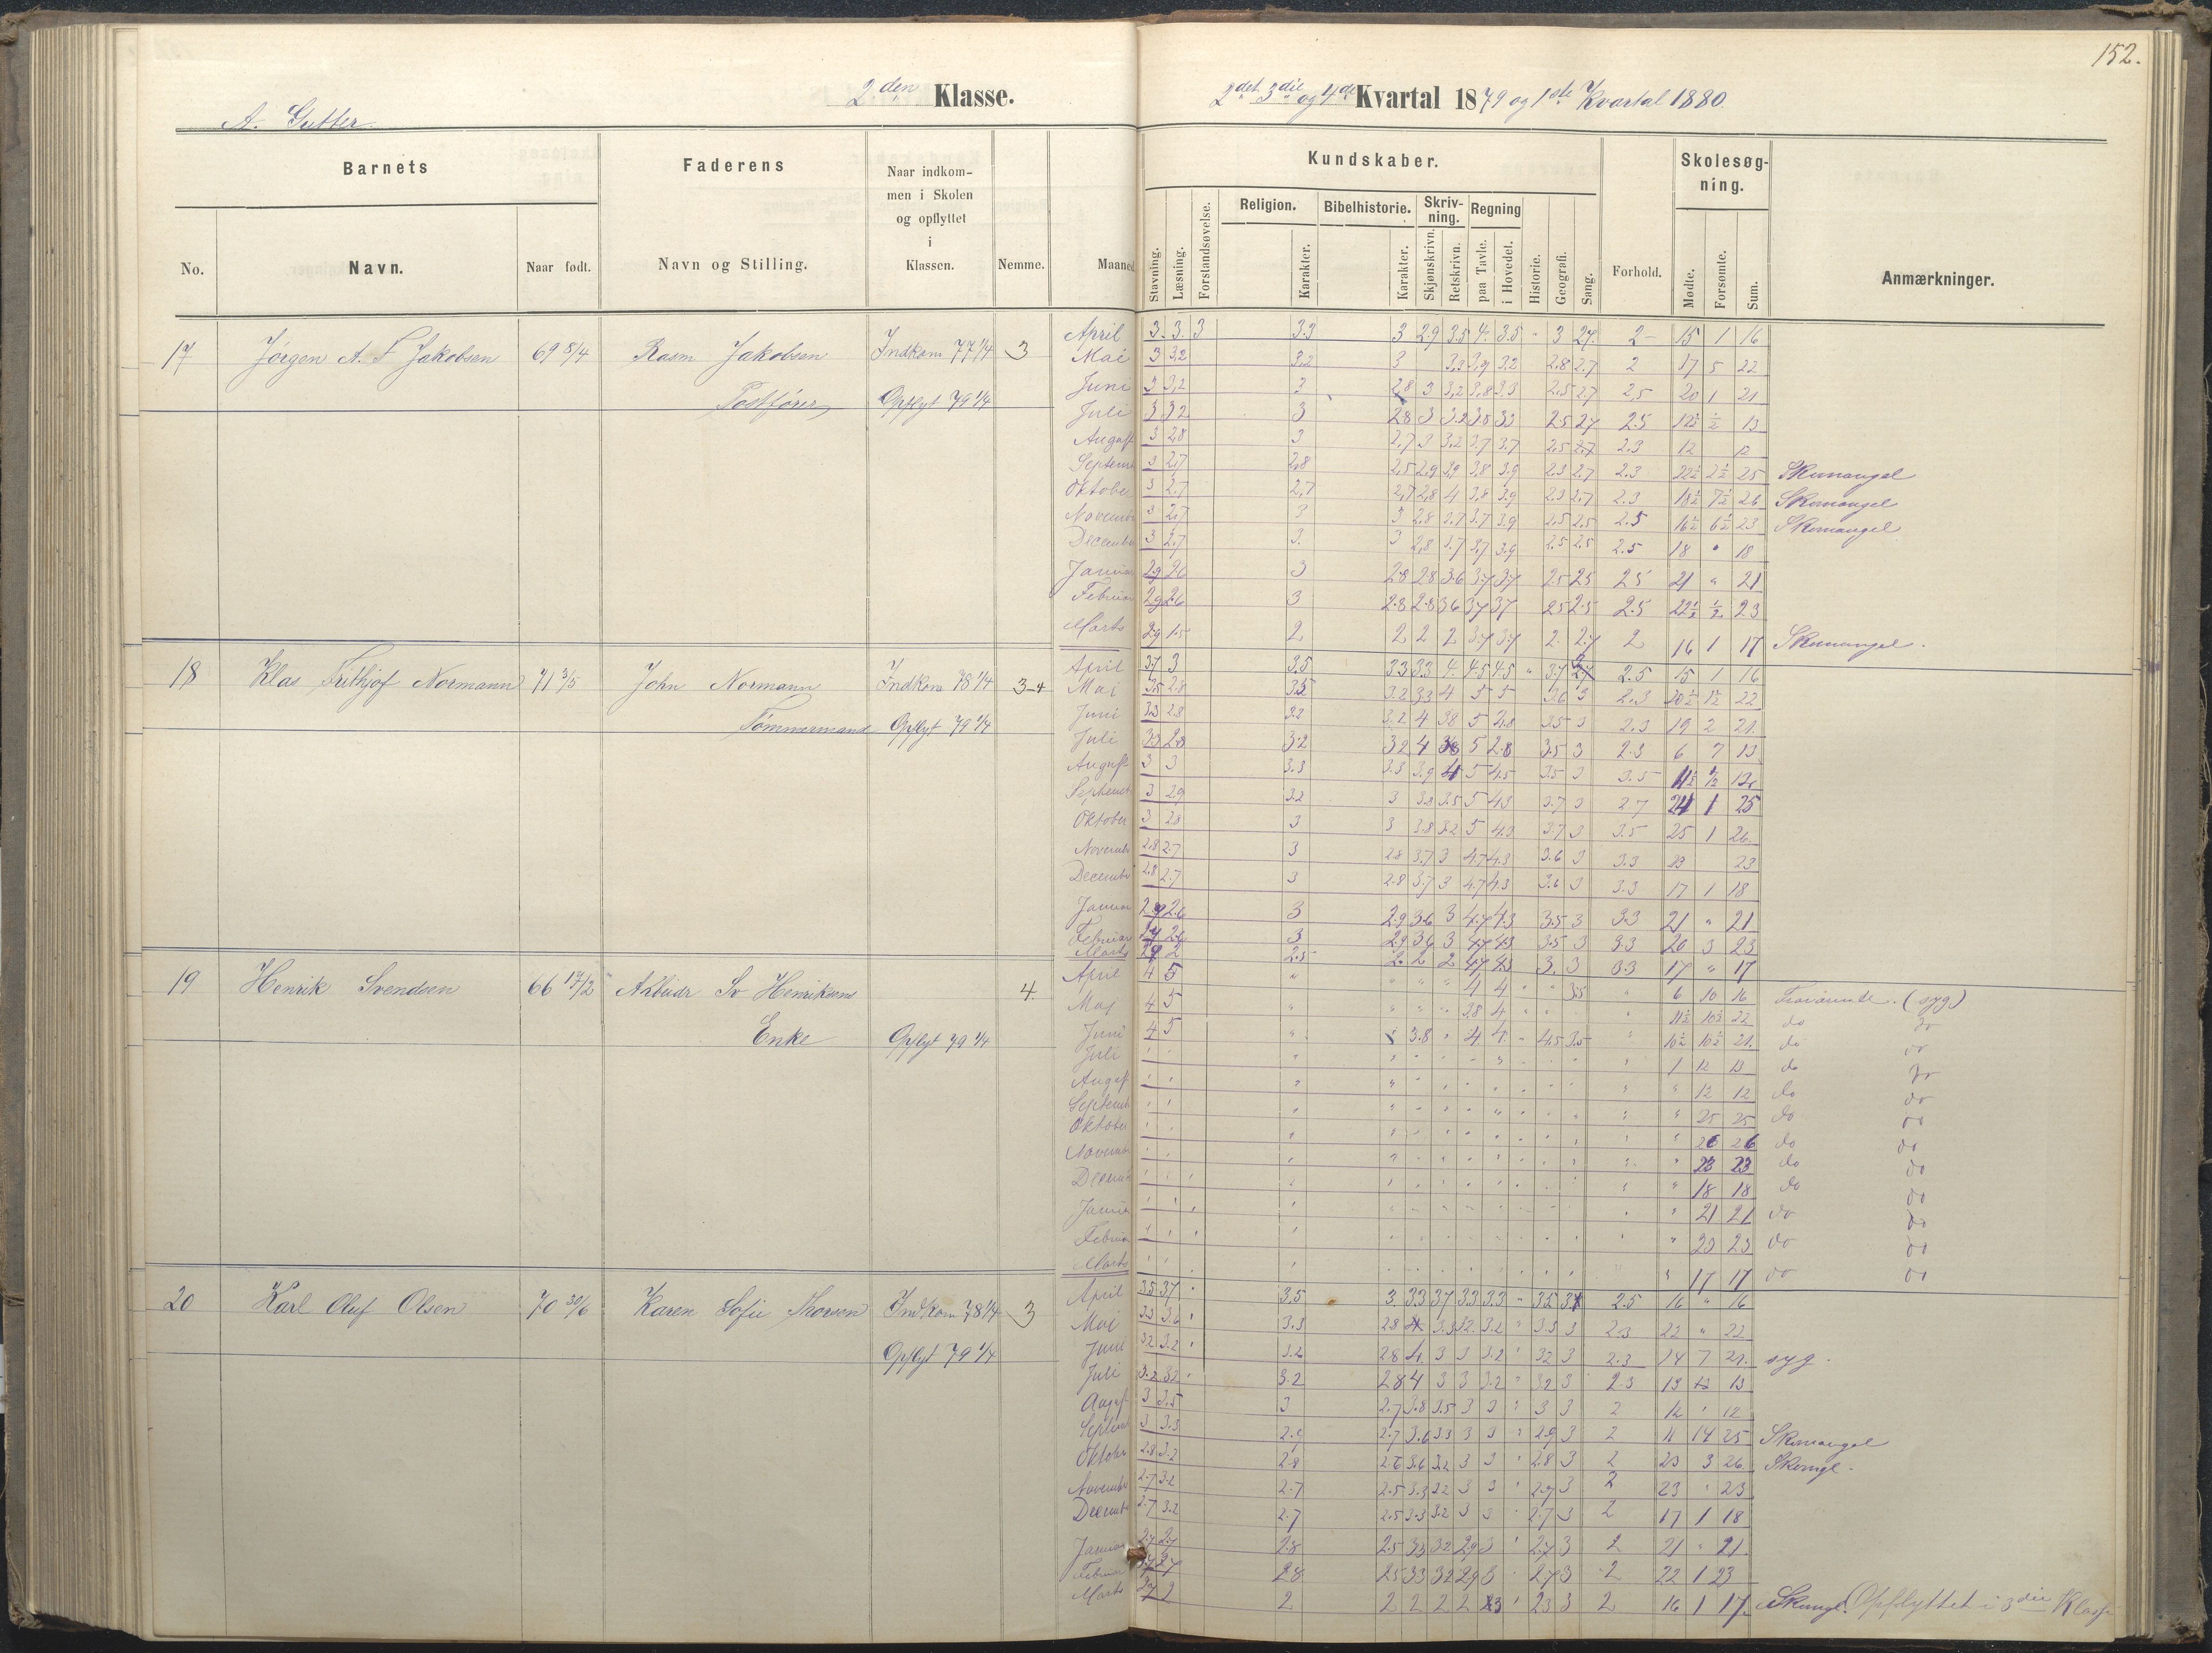 152.
2den Klasse.
2det 3die og 4de Kvartal 1879 og 1ste Kvartal 1880.
A. Gutter.
Barnets
Faderens
Naar indkom-
men i Skolen
og opflyttet
i
Klassen.
Nemme.
Maaned
No.
Navn.
Naar født.
Navn og Stilling.
Kundskaber.
Skolesøg-
ning.
Religion.
Bibelhistorie.
Skriv-
ning.
Regning
Stavning.
Læsning.
Forstandsøvelse.
Karakter.
Karakter.
Skjønskrivn.
Retskrivn.
paa Tavle.
i Hovedet.
Historie.
Geografi.
Sang.
Forhold.
Mødte.
Forsømte.
Sum.
Anmærkninger.
17 Jørgen A. F Jakobsen 69 8/4 Rasm Jakobsen Indkom 77 1/4 3
Postfører Opflyt 79 1/4
April 3. 3. 3 3.3 3 2.9 3.5 4. 3.5 " 3 2.7. 2- 15 1 16
Mai 3 3,2 3,2 3 3,2 3,9 3.2 2.8 2.7 2 17 5 22
Juni 3 3,2 3 2,8 3 3,2 3,8 3.3 2,5 2,7 2,5 20 1 21
Juli 3 3 2 3 2.8 3 3.2 3.8 3.3 2.5 2.7 2.5 12½ ½ 13
August 3 2.8 3 2,7 3 3,2 3.7 3.7 2.5 2.7 2.3 12 12
Septemb 3 2,7 2,8 2,5 2,9 3,9 3.8 3.9 2.3 2.7 2.3 22½ 2½ 25 Skomangel
Oktober 3 2.7 2,7 2,7 2,8 4 3.8 3.9 2.3 2.7 2.3 18½ 7½ 26 Skomangel
Novemb 3 2,7 3 3 2.8 3.7 3.7 3.9 2.5 2.5 2.5 16½ 6½ 23 Skomangel
Decemb 3 2.7 3. 3 2,8 3.7 3,7 3.9 2.5 2.5 2.5 18 " 18
Januar 2.9 2.6 3 2.8 2.8 3.6 3.7 3.7 2.5 2.5 2.5 21 " 21
Februar 2.9 2.6 3 2.8 2.8 3.6 3.7 3.7 2.5 2.5 2.5 22½ ½ 23
Marts 2.9 1.5 2 2 2 2 3.7 3.7 2. 2.7 2 16 1 17 Skomangel.
18 Klas Frithjof Normann 71 3/5 John Normann Indkom 78 1/4 3-4
Tømmermand Opflyt 79 1/4
April 3.7 3 3.5 3.3 3.3 4. 4.5 4.5 " 3.7 2.5 15 1 16
Mai 3.5 2.8 3.5 3.2 3.3 4 5 5 3.6 3 2.3 20½ 1½ 22
Juni 3.3 2.8 3.2 3.2 4 3.8 5 2.8 3.5 3 2.3 19 2 21.
Juli 3.3 2.8 3.2 3.2 4 3.8 5 2.8 3.5 3 2.3 6 7 13
August 3 3 3.3 3.3 3.9 4 5 4.5 3.5 3 3.5 11½ ½ 12
Septemb 3 2.9 3.2 3 3.8 3.5 5 4.3 3.7 3 2.7 24 1 25
Oktober 3 2.8 3 3 3.8 3.2 5 4.3 3.7 3 3.5 25 1 26.
Novemb 2.8 2.7 3 2.8 3.7 3 4.7 4.3 3.6 3 3.3 23 23
Decembr 2.8 2.7 3 2.8 3.7 3 4.7 4.3 3.6 3 3.3 17 1 18
Januar 2.7 2.6 3 2.9 3.6 3 4.7 4.3 3.5 3 3.3 21 " 21
Februar 2.7 2.6 3 2.9 3.6 3 4.7 4.3 3.5 3 3.3 20 3 23
Marts 2.7 2 2.5 2. 2 2 4.7 4.3 3. 3 3.3 17 " 17
19 Henrik Svendsen 66 17/2 Arbeidr Sv Henriksens 4.
Enke Opflyt 79 1/4
April 4 5 " " " " 4 4 " " 3.5 " 6 10 16 (syg)
Mai 4 5 " " " " 3.8 4 " " " 11½ 10½ 22 do do
Juni 4 5 " 3.8 " 4 4. " 4.5 3.5 " 10½ 10½ 21. do do
Juli " " " " " " " " 1 12 13 do do
August " " " " " " " " " 12 12 do do
Septemb " " " " " " " " " 25 25 do do
Oktober " " " " " " " " " 26 26 do do
Novemb " " " " " " " " " 23 23 do do
Decemb " " " " " " " " " 18 18 do do
Januar " " " " " " " " " 21 21 do do
Februar " " " " " " " " " 23 23 do do
Marts " " " " " " " " " 17 17 do do
20 Karl Oluf Olsen 70 30/6 Karen Sofie Thorsen Indkom 78 1/4 3
Opflyt 79 1/4
April 3.5 3.7 " 3.5 3. 3.3 3.7 3.3 3.3 " 3.5 2.5 16 " 16
Mai 3.3 3.6 " 3.3 2.8 4 3.3 3.2 3.2 " 3.3 3 2.3 22 " 22
Juni 3.2 3.2 " 3.2 2.8 4. 3 3 3.2 " 3.2 3 2.3 14 7 21. syg.
Juli 3.2 3.2 " 3.2 2.8 4 3 3 3.2 " 3.2 3 2.3 13 13
August 3 3.5 3 2.7 3.8 3.5 3 3 " 3 3 2 12 " 12
Septemb 3 3.3 2.9 2.7 3.6 3.3 3 3 " 2.9 3 2 11 14 25 Skomangel
Oktober 2.8 3.2 2.8 2.6 3.6 3.2 3 3 " 2.8 3 2 23 3 26 Skomgl.
Novembr 2.7 3.2 2.7 2.5 3.3 3.2 3 3 " 2.7 3 2 23 " 23
Decemb 2.7 3.2 2.7 2.5 3.3 3.2 3 3 " 2.7 3 2 17 1 18
Januar 2.7 2.7 2.8 2.5 3.3 3.2 2.9 3 " 2.7 3 2 21 " 21.
Februar 2.7 2.7 2.8 2.5 3.3 3.2 2.9 3 " 2.7 3 2 22 1 23
Marts 2.7 2 2 2 2 2 2 3 " 2.3 3 2 16 1 17. Skomgl. Opflyttet i 3die Klasse